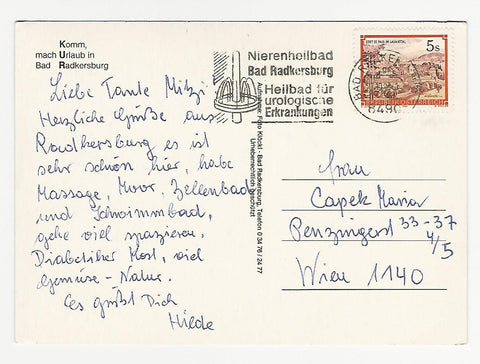 Komm,
mach Urlaub in
Bad Radkersburg
Nierenheilbad
Bad Radkersburg
Heilbad für
urologische
Erkrankungen
5s
STIFT ST. PAUL IM LAVANTTAL
REPUBLIK ÖSTERREICH
BAD
8490
Liebe Tante Mitzi
Herzliche Grüße aus
Radkersburg es ist
sehr schön hier, habe
Massage, Moor, Zellenbad
und Schwimmbad,
gehe viel spazieren,
Diabetiker Kost, viel
Gemüse - Natur.
Es grüßt Dich
Hilde
Aufnahme: Foto Köckl · Bad Radkersburg, Telefon 0 34 76 / 24 77
Urheberrechtlich geschützt
Frau
Capek Maria
Penzingerst 33-37
4/5
Wien 1140